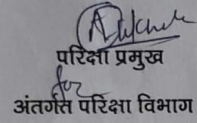 परिक्षा प्रमुख
for
अंतर्गत परिक्षा विभाग